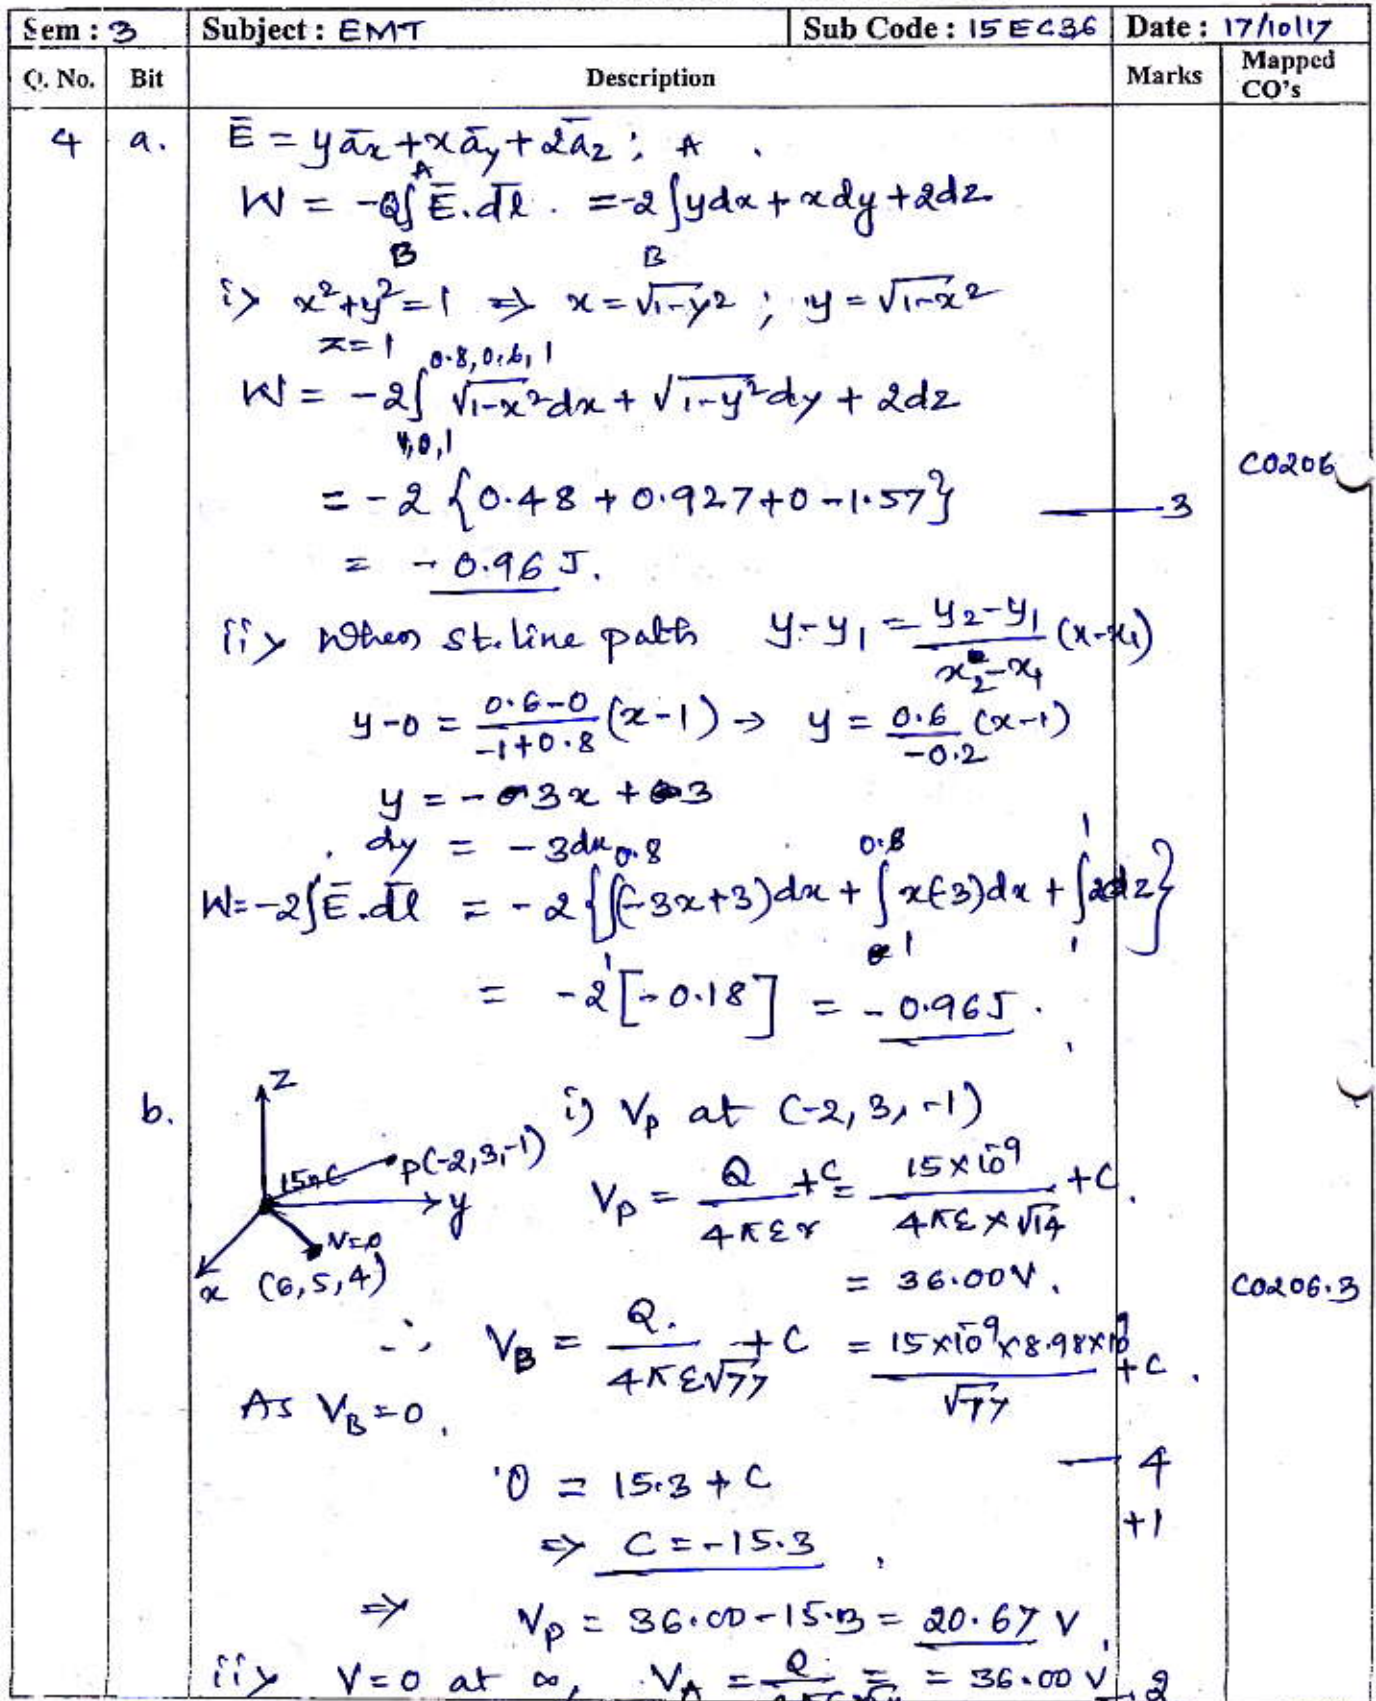 Sem : 3 Subject : EMT Sub Code : 15EC36 Date : 17/10/17
Q. No. Bit Description Marks Mapped CO's
4 a. Ē = yāx + xāy + 2āz ; A .
W = -Q∫_B^A Ē.dl̄ . = -2∫_B ydx + xdy + 2dz
i> x²+y²=1 ⇒ x = √1-y² ; y = √1-x²
z=1
W = -2∫_{1,0,1}^{0.8,0.6,1} √1-x² dx + √1-y² dy + 2dz
CO206
= -2 {0.48 + 0.927 + 0 - 1.57} — 3
= -0.96 J.
ii> When st. line path y-y₁ = (y₂-y₁)/(x₂-x₁) (x-x₁)
y-0 = (0.6-0)/(-1+0.8) (x-1) → y = 0.6/-0.2 (x-1)
y = -3x + 3
dy = -3dx
W = -2∫Ē.dl̄ = -2{∫_1^0.8 (-3x+3)dx + ∫_1^0.8 x(-3)dx + ∫_1^1 2dz}
= -2[-0.18] = -0.96J .
b. z i) Vp at (-2, 3, -1)
15nC P(-2,3,-1) y
Vp = Q/4πεr + C = 15×10⁻⁹/4πε×√14 + C.
V=0
x (6,5,4) = 36.00V. CO206.3
∴ V_B = Q./4πε√77 + C = 15×10⁻⁹×8.98×10⁹/√77 + C .
As V_B = 0,
0 = 15.3 + C — 4
+1
⇒ C = -15.3 ,
⇒ Vp = 36.00 - 15.3 = 20.67 V.
ii> V=0 at ∞, V_A = Q = = 36.00 V — 2